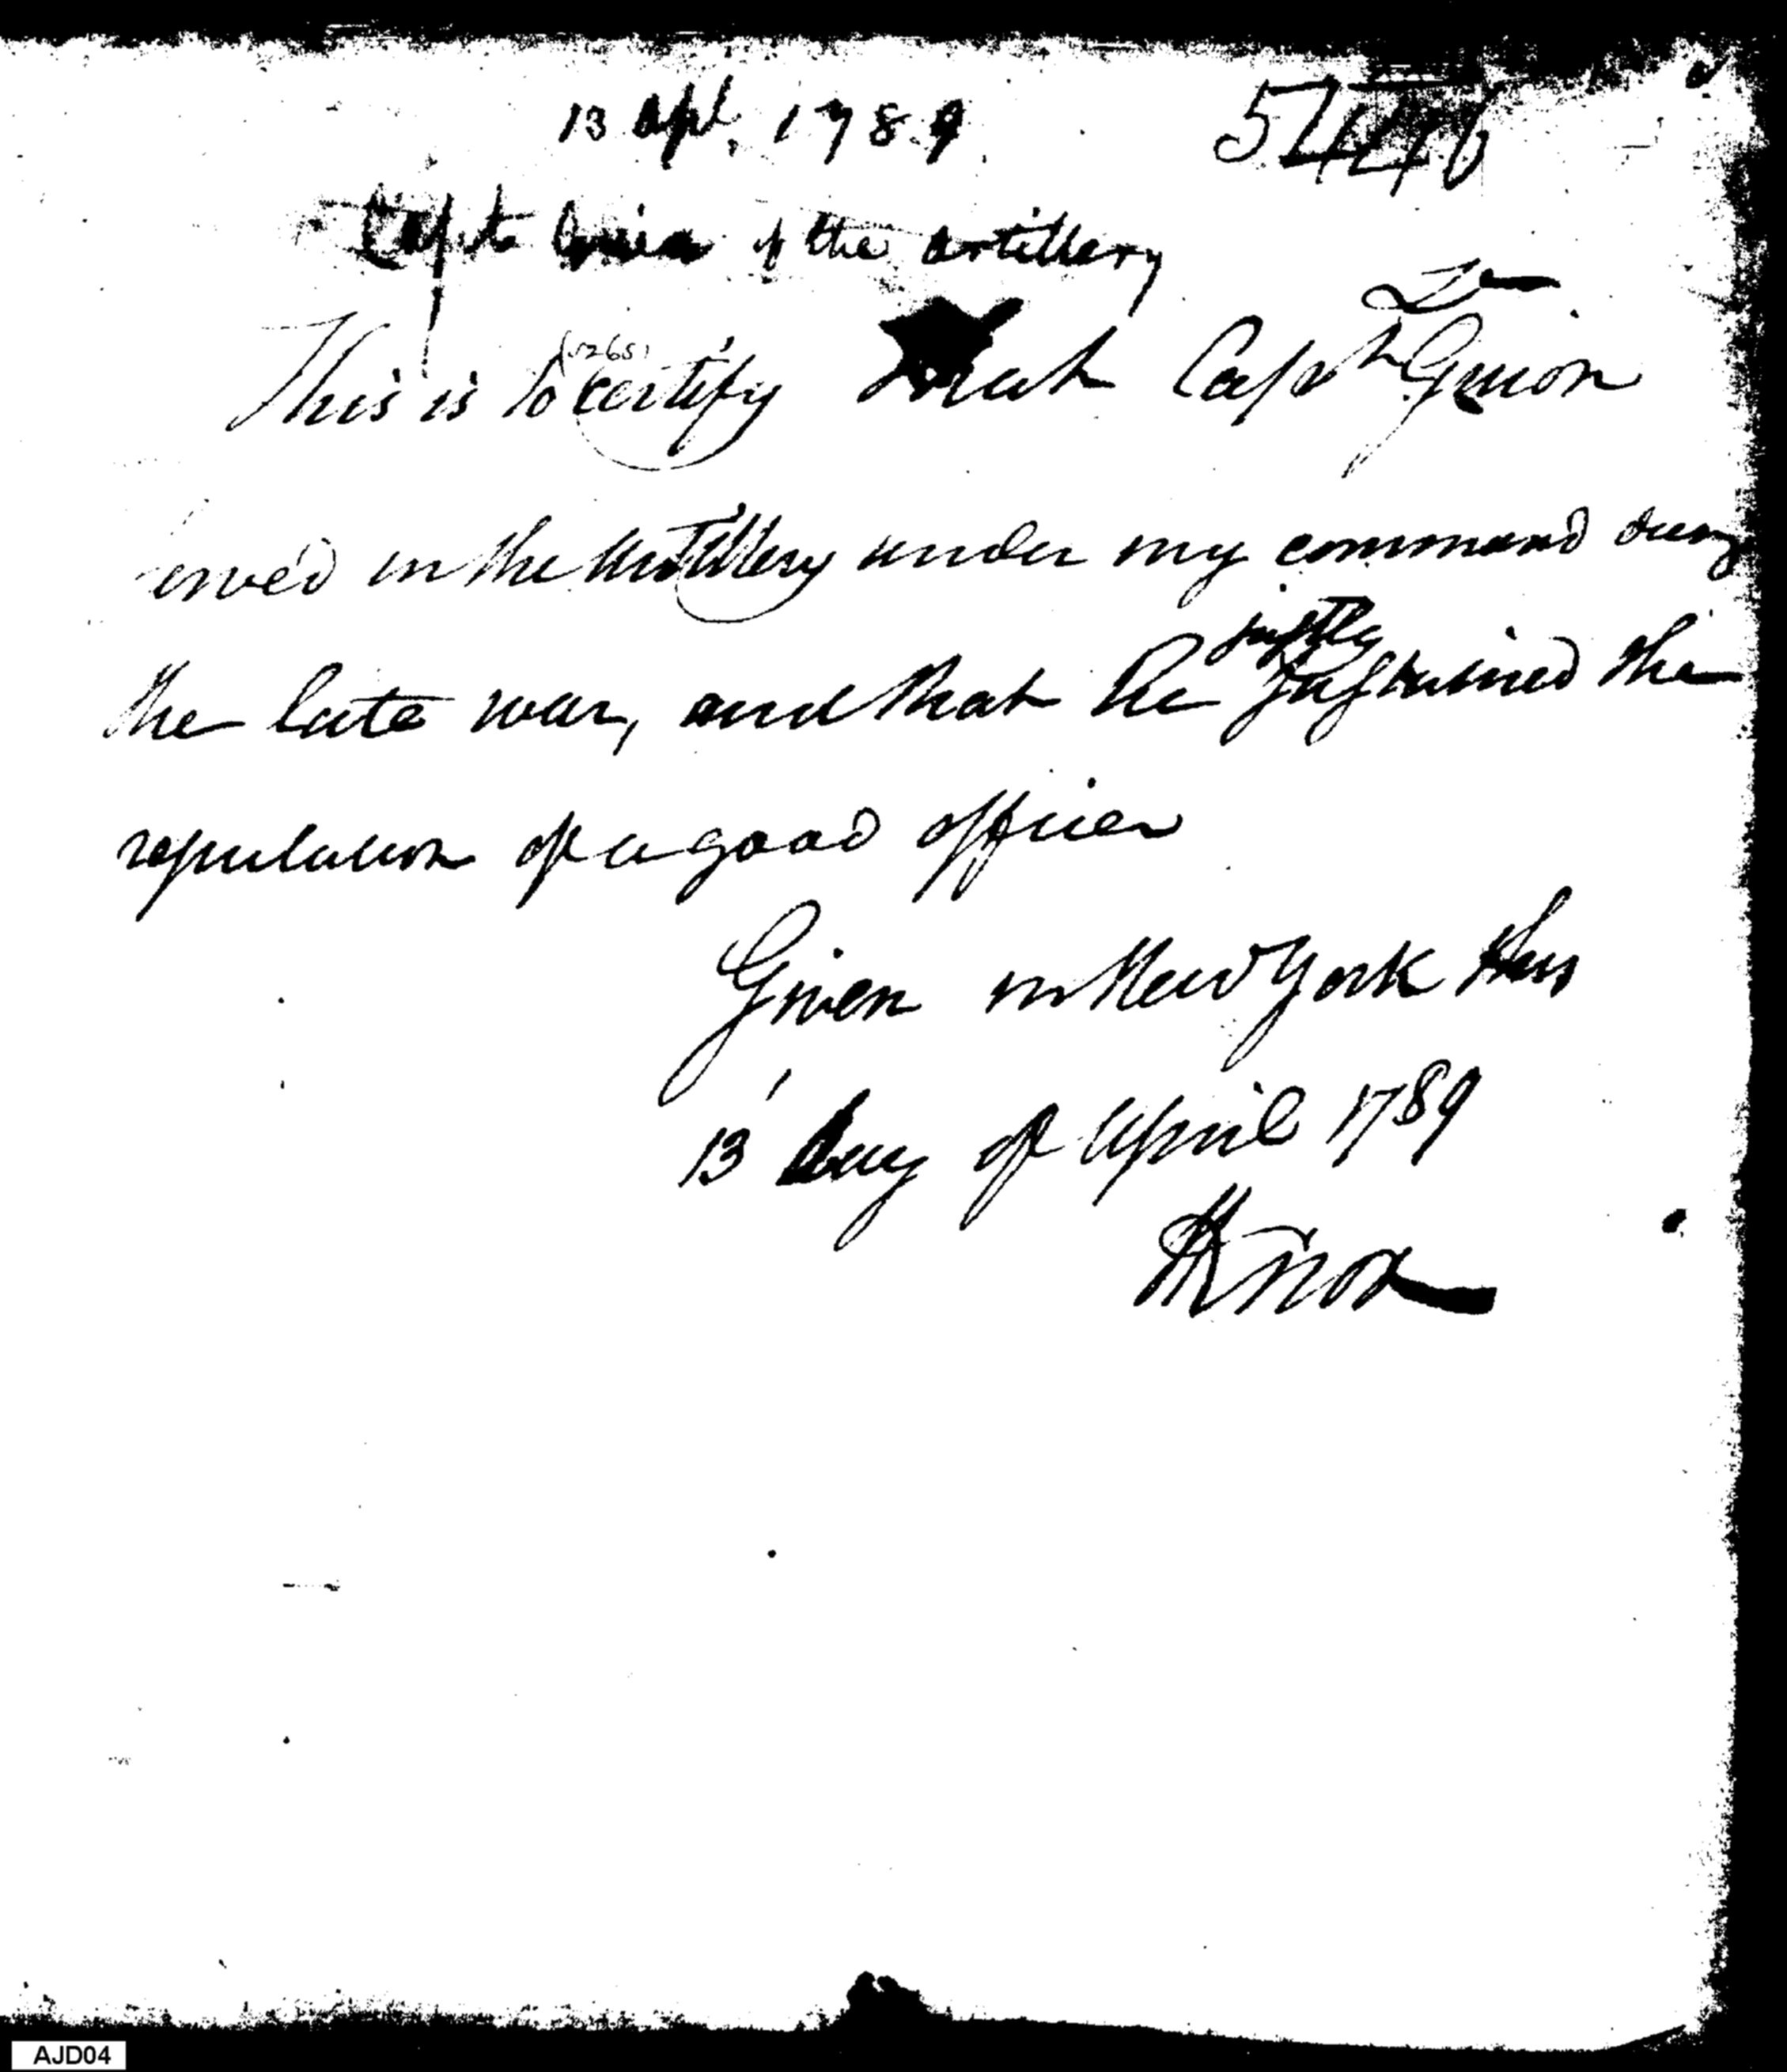 13 Apl. 1789. 5446
Capt Guion of the artillery
This is to certify that Capt Guion
erved in the Artillery under my command during
the late war, and that he justly sustained the
reputation of a good officer
Given in New York this
13 day of April 1789
HKnox
AJD04